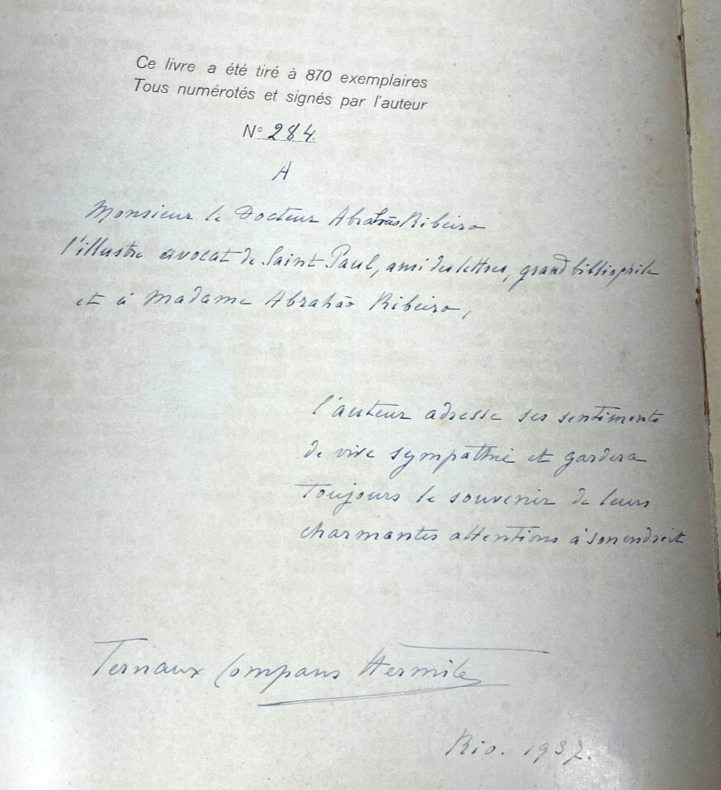 Ce livre a été tiré à 870 exemplaires
Tous numérotés et signés par l'auteur
N° 284
A
Monsieur le Docteur Abrahão Ribeiro
l'illustre avocat de Saint Paul, ami des lettres, grand bibliophile
et à Madame Abrahão Ribeiro,
l'auteur adresse ses sentiments
de vive sympathie et gardera
toujours le souvenir de leurs
charmantes attentions à son endroit
Ternaux Compans Hermite
Rio. 1937.